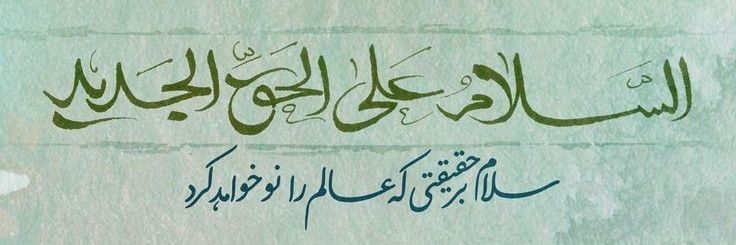 السَّلامُ عَلَى الحَقِّ الجَدید
سلام بر حقیقتی که عالم را نو خواهد کرد